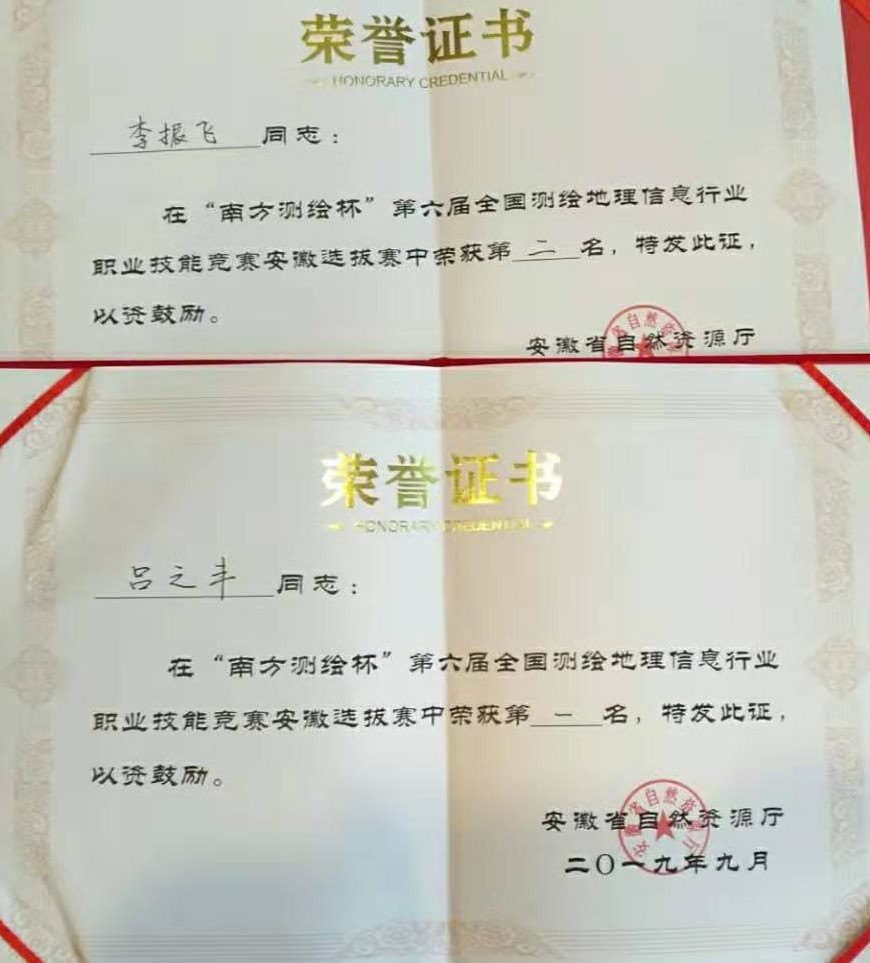 荣誉证书
HONORARY CREDENTIAL
李振飞 同志：
在“南方测绘杯”第六届全国测绘地理信息行业
职业技能竞赛安徽选拔赛中荣获第二名，特发此证，
以资鼓励。
安徽省自然资源厅
荣誉证书
HONORARY CREDENTIAL
吕之丰 同志：
在“南方测绘杯”第六届全国测绘地理信息行业
职业技能竞赛安徽选拔赛中荣获第一名，特发此证，
以资鼓励。
安徽省自然资源厅
安徽省自然资源厅
二〇一九年九月